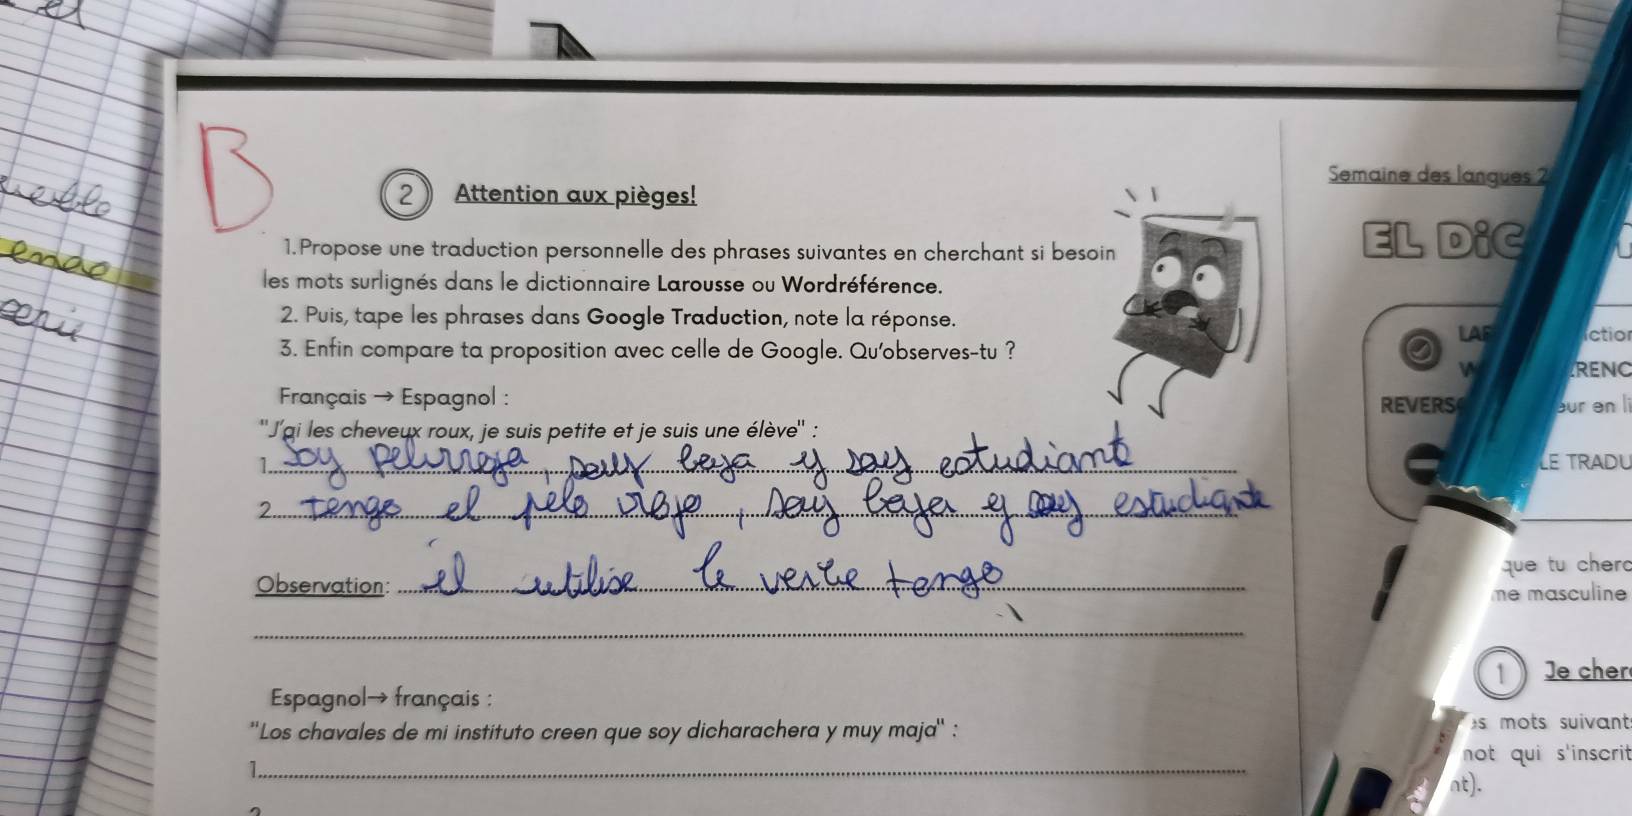 B
2 Attention aux pièges!
1.Propose une traduction personnelle des phrases suivantes en cherchant si besoin
les mots surlignés dans le dictionnaire Larousse ou Wordréférence.
2. Puis, tape les phrases dans Google Traduction, note la réponse.
3. Enfin compare ta proposition avec celle de Google. Qu'observes-tu ?
Français → Espagnol :
"J'ai les cheveux roux, je suis petite et je suis une élève" :
1 Soy pelirroja, soy baja y soy estudiant
2 tengo el pelo rojo, soy baja y soy estudiante
Observation: il utilise le verbe tengo
Espagnol→ français :
"Los chavales de mi instituto creen que soy dicharachera y muy maja" :
1
Semaine des langues 2
EL DiC
LAR ction
W RENC
REVERS eur en li
LE TRADU
que tu cherc
me masculine
1 Je cher
es mots suivant
not qui s'inscrit
nt).